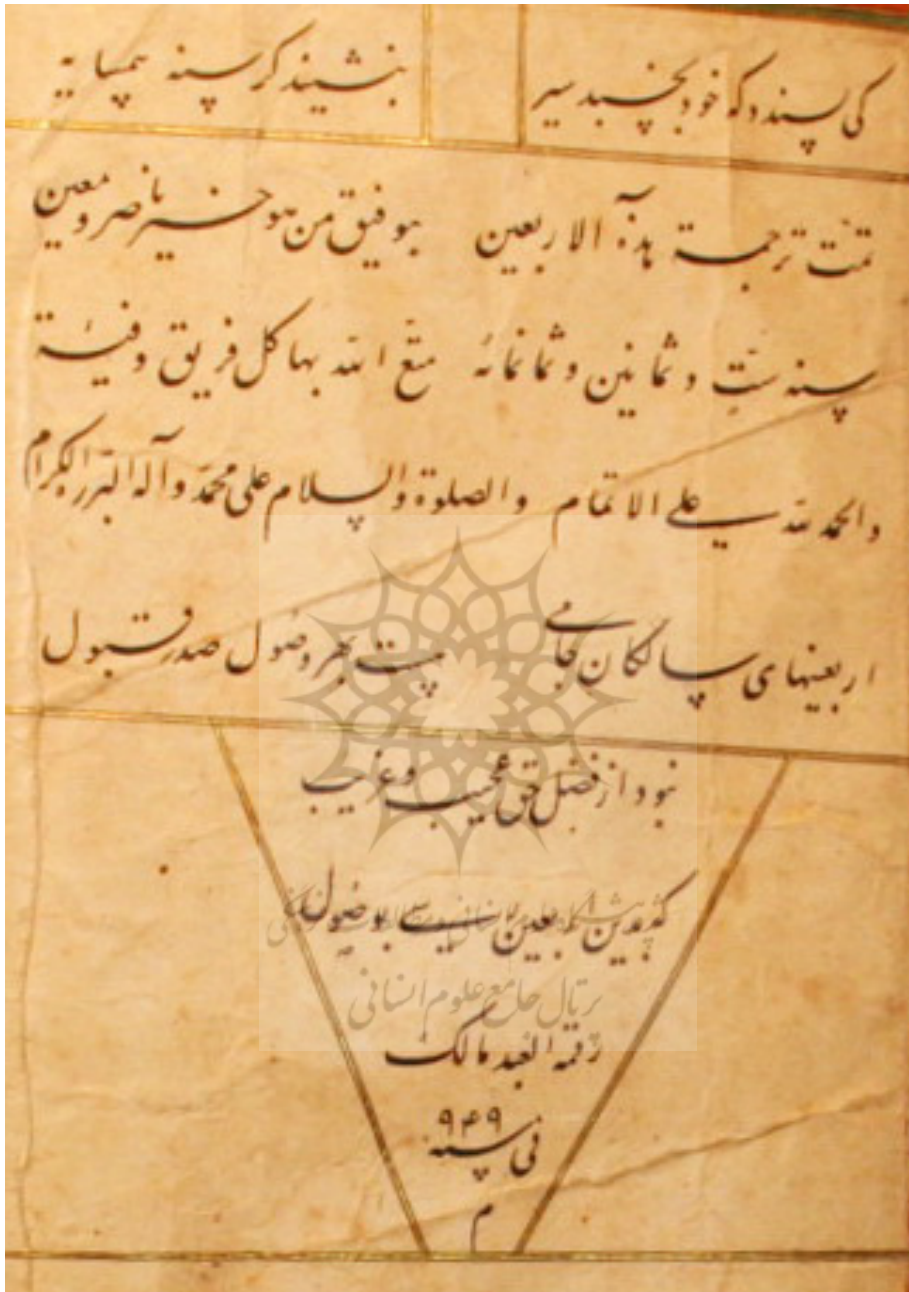 کی پسندد که خود بخسبد سیر    بنشیند گرسنه همسایه
تمت ترجمة هذه الاربعین    بتوفیق من هو خیر ناصر و معین
سنه ست و ثمانین و ثمانمائه    متع الله بها کل فریق و فیئة
والحمد لله علی الاتمام    والصلوة والسلام علی محمد وآله البررة الکرام
اربعینهای سالکان جامی    هست بهر وصول صدر قبول
نبود از فضل حق عجیب و غریب
که بدین اربعین بوصول
پرتال جامع علوم انسانی
رقمه العبد مالک
فی سنه ۹۴۹
م